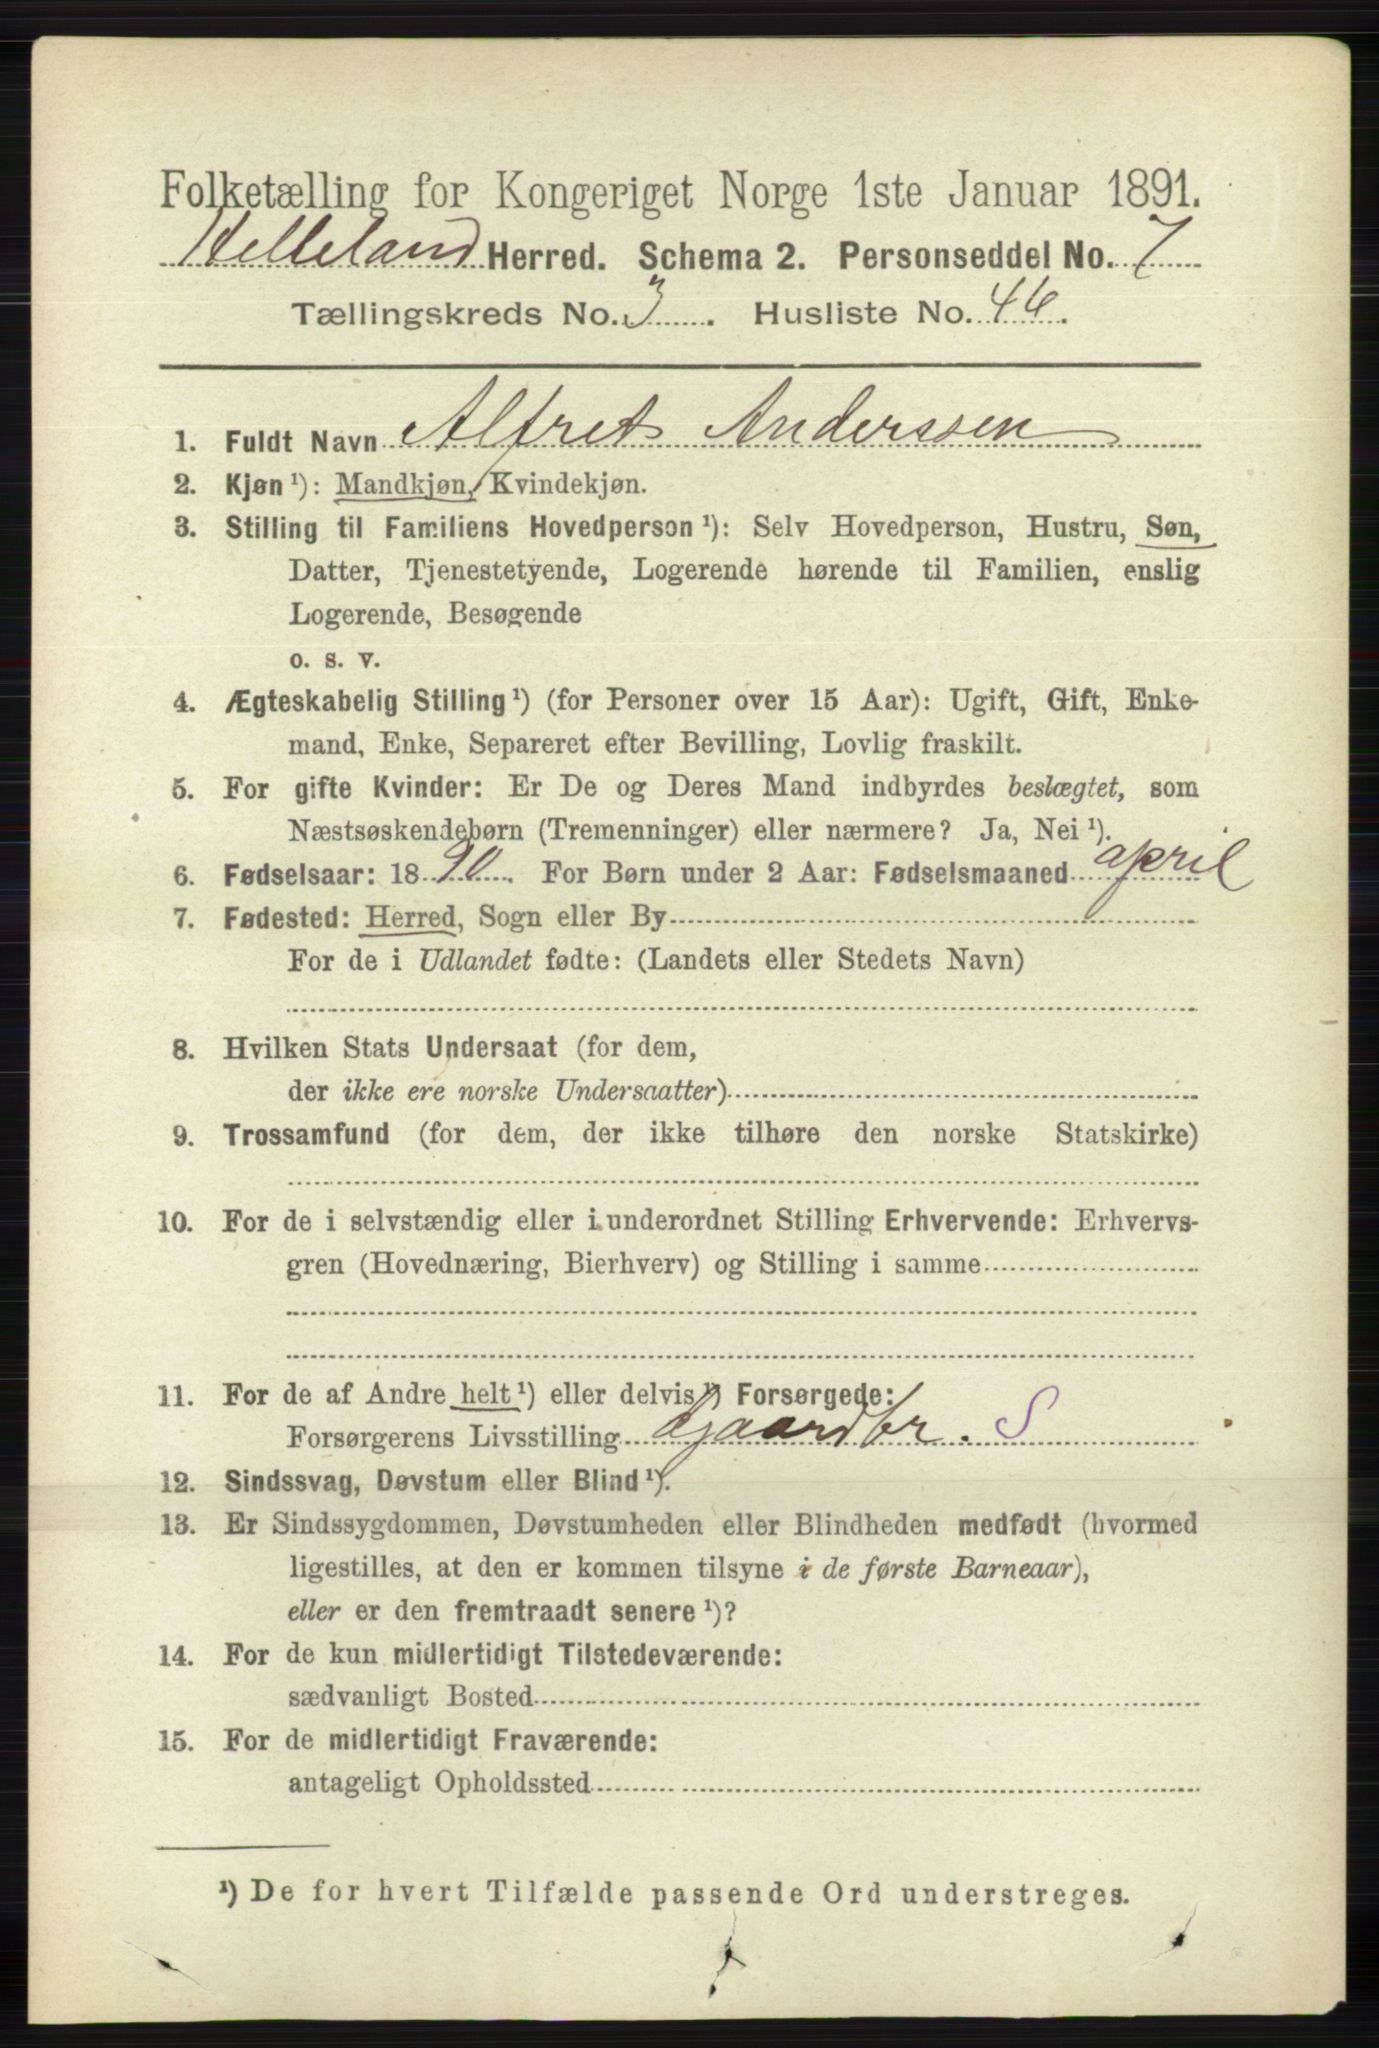 Folketælling for Kongeriget Norge 1ste Januar 1891.
Helleland Herred. Schema 2. Personseddel No. 7
Tællingskreds No. 3. Husliste No. 46.
1. Fuldt Navn Alfret Anderssen
2. Kjøn ¹): Mandkjøn, Kvindekjøn.
3. Stilling til Familiens Hovedperson ¹): Selv Hovedperson, Hustru, Søn,
Datter, Tjenestetyende, Logerende hørende til Familien, enslig
Logerende, Besøgende
o. s. v.
4. Ægteskabelig Stilling ¹) (for Personer over 15 Aar): Ugift, Gift, Enke-
mand, Enke, Separeret efter Bevilling, Lovlig fraskilt.
5. For gifte Kvinder: Er De og Deres Mand indbyrdes beslægtet, som
Næstsøskendebørn (Tremenninger) eller nærmere? Ja, Nei ¹).
6. Fødselsaar: 1890. For Børn under 2 Aar: Fødselsmaaned april
7. Fødested: Herred, Sogn eller By
For de i Udlandet fødte: (Landets eller Stedets Navn)
8. Hvilken Stats Undersaat (for dem,
der ikke ere norske Undersaatter)
9. Trossamfund (for dem, der ikke tilhøre den norske Statskirke)
10. For de i selvstændig eller i underordnet Stilling Erhvervende: Erhvervs-
gren (Hovednæring, Bierhverv) og Stilling i samme
11. For de af Andre helt ¹) eller delvis ¹) Forsørgede:
Forsørgerens Livsstilling Gaardbr. S
12. Sindssvag, Døvstum eller Blind ¹).
13. Er Sindssygdommen, Døvstumheden eller Blindheden medfødt (hvormed
ligestilles, at den er kommen tilsyne i de første Barneaar),
eller er den fremtraadt senere ¹)?
14. For de kun midlertidigt Tilstedeværende:
sædvanligt Bosted
15. For de midlertidigt Fraværende:
antageligt Opholdssted
¹) De for hvert Tilfælde passende Ord understreges.